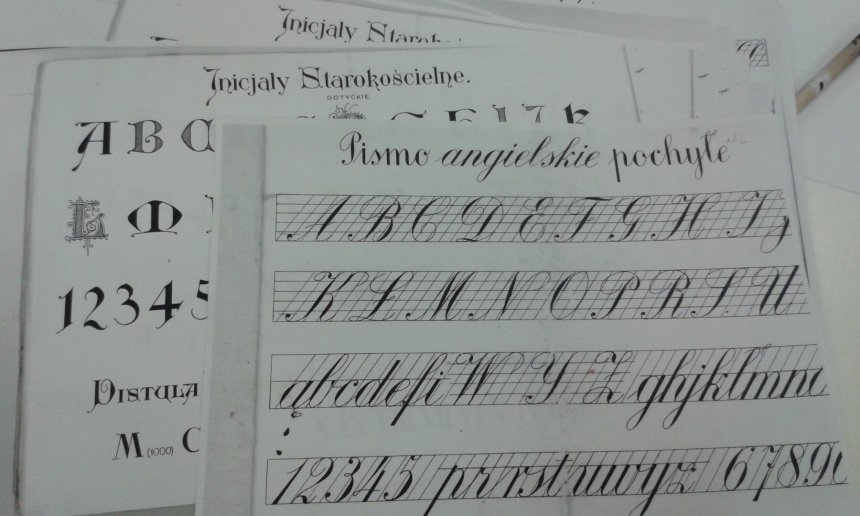 Inicjały
Inicjały Starokościelne.
GOTYCKIE
A B C
L M
1 2 3 4 5
M (1000) C
Pismo angielskie pochyłe
A B C D E F G H I J
K L M N O P R S U
ąbcdefi W Y Z ghjklmn
12345 prrstuwyz 6789